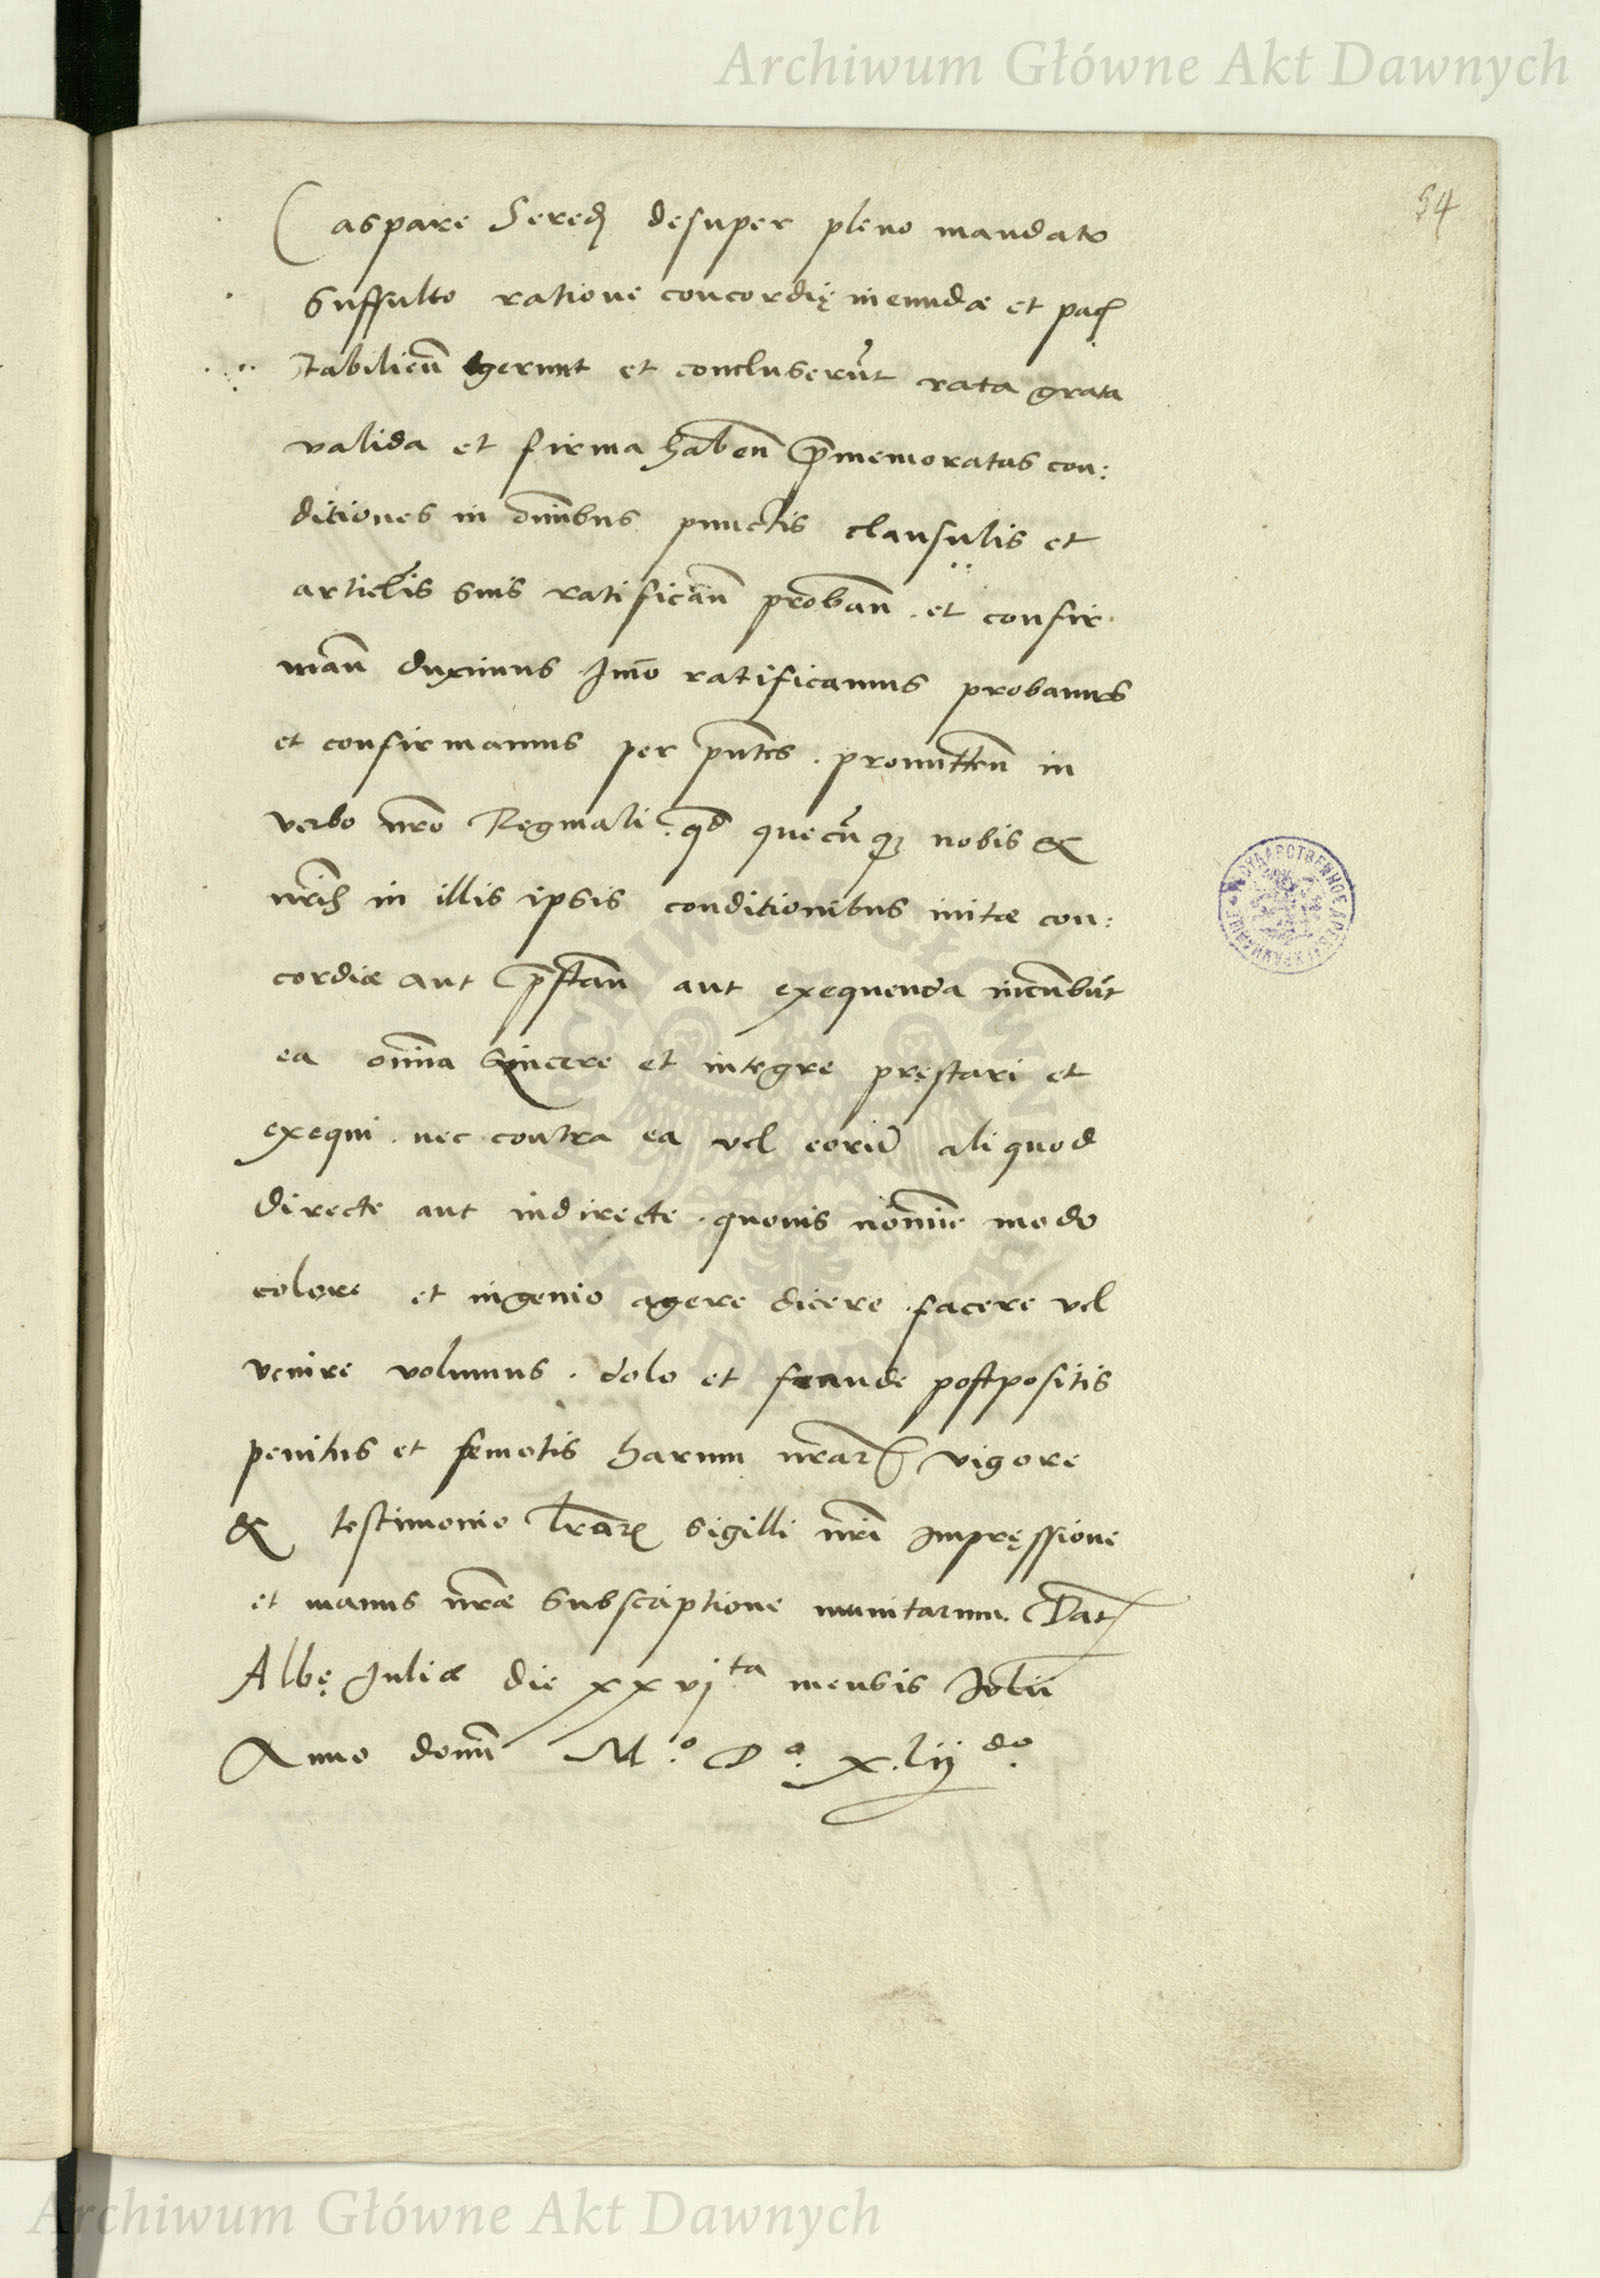 Archiwum Główne Akt Dawnych
54
Caspare Seredj desuper pleno mandato
suffulto ratione concordię ineundæ et pacis
stabiliendȩ egerunt et concluserūt rata grata
valida et firma habeñ p̄memoratas con:
ditiones in om̄ibus punctis clausulis et
articl̄is suis ratificañ probañ. et confir
mañ duximus Im̄o ratificamus probamus
et confirmamus per p̄ntes. promitteñ in
verbo nr̄o Reginali. qd̄ quecūq; nobis &
nr̄is in illis ipsis conditionibus initæ con:
cordiæ aut p̄stañ aut exequenda incūbūt
ea om̄ia sincere et integre pręstari et
exequi. nec contra ea vel eorū aliquod
directe aut indirecte. quouis nomīe modo
colore et ingenio agere dicere facere vel
venire volumus. dolo et fraude postpositis
penitus et semotis harum nr̄arꝝ vigore
& testimonio lr̄arꝝ sigilli nr̄i impręssione
et manus nr̄æ subscriptione munitarum. Dat
Albę Juliæ die xxvjta mensis Julii
Anno domī M.o D.o x.lijdo.
Archiwum Główne Akt Dawnych